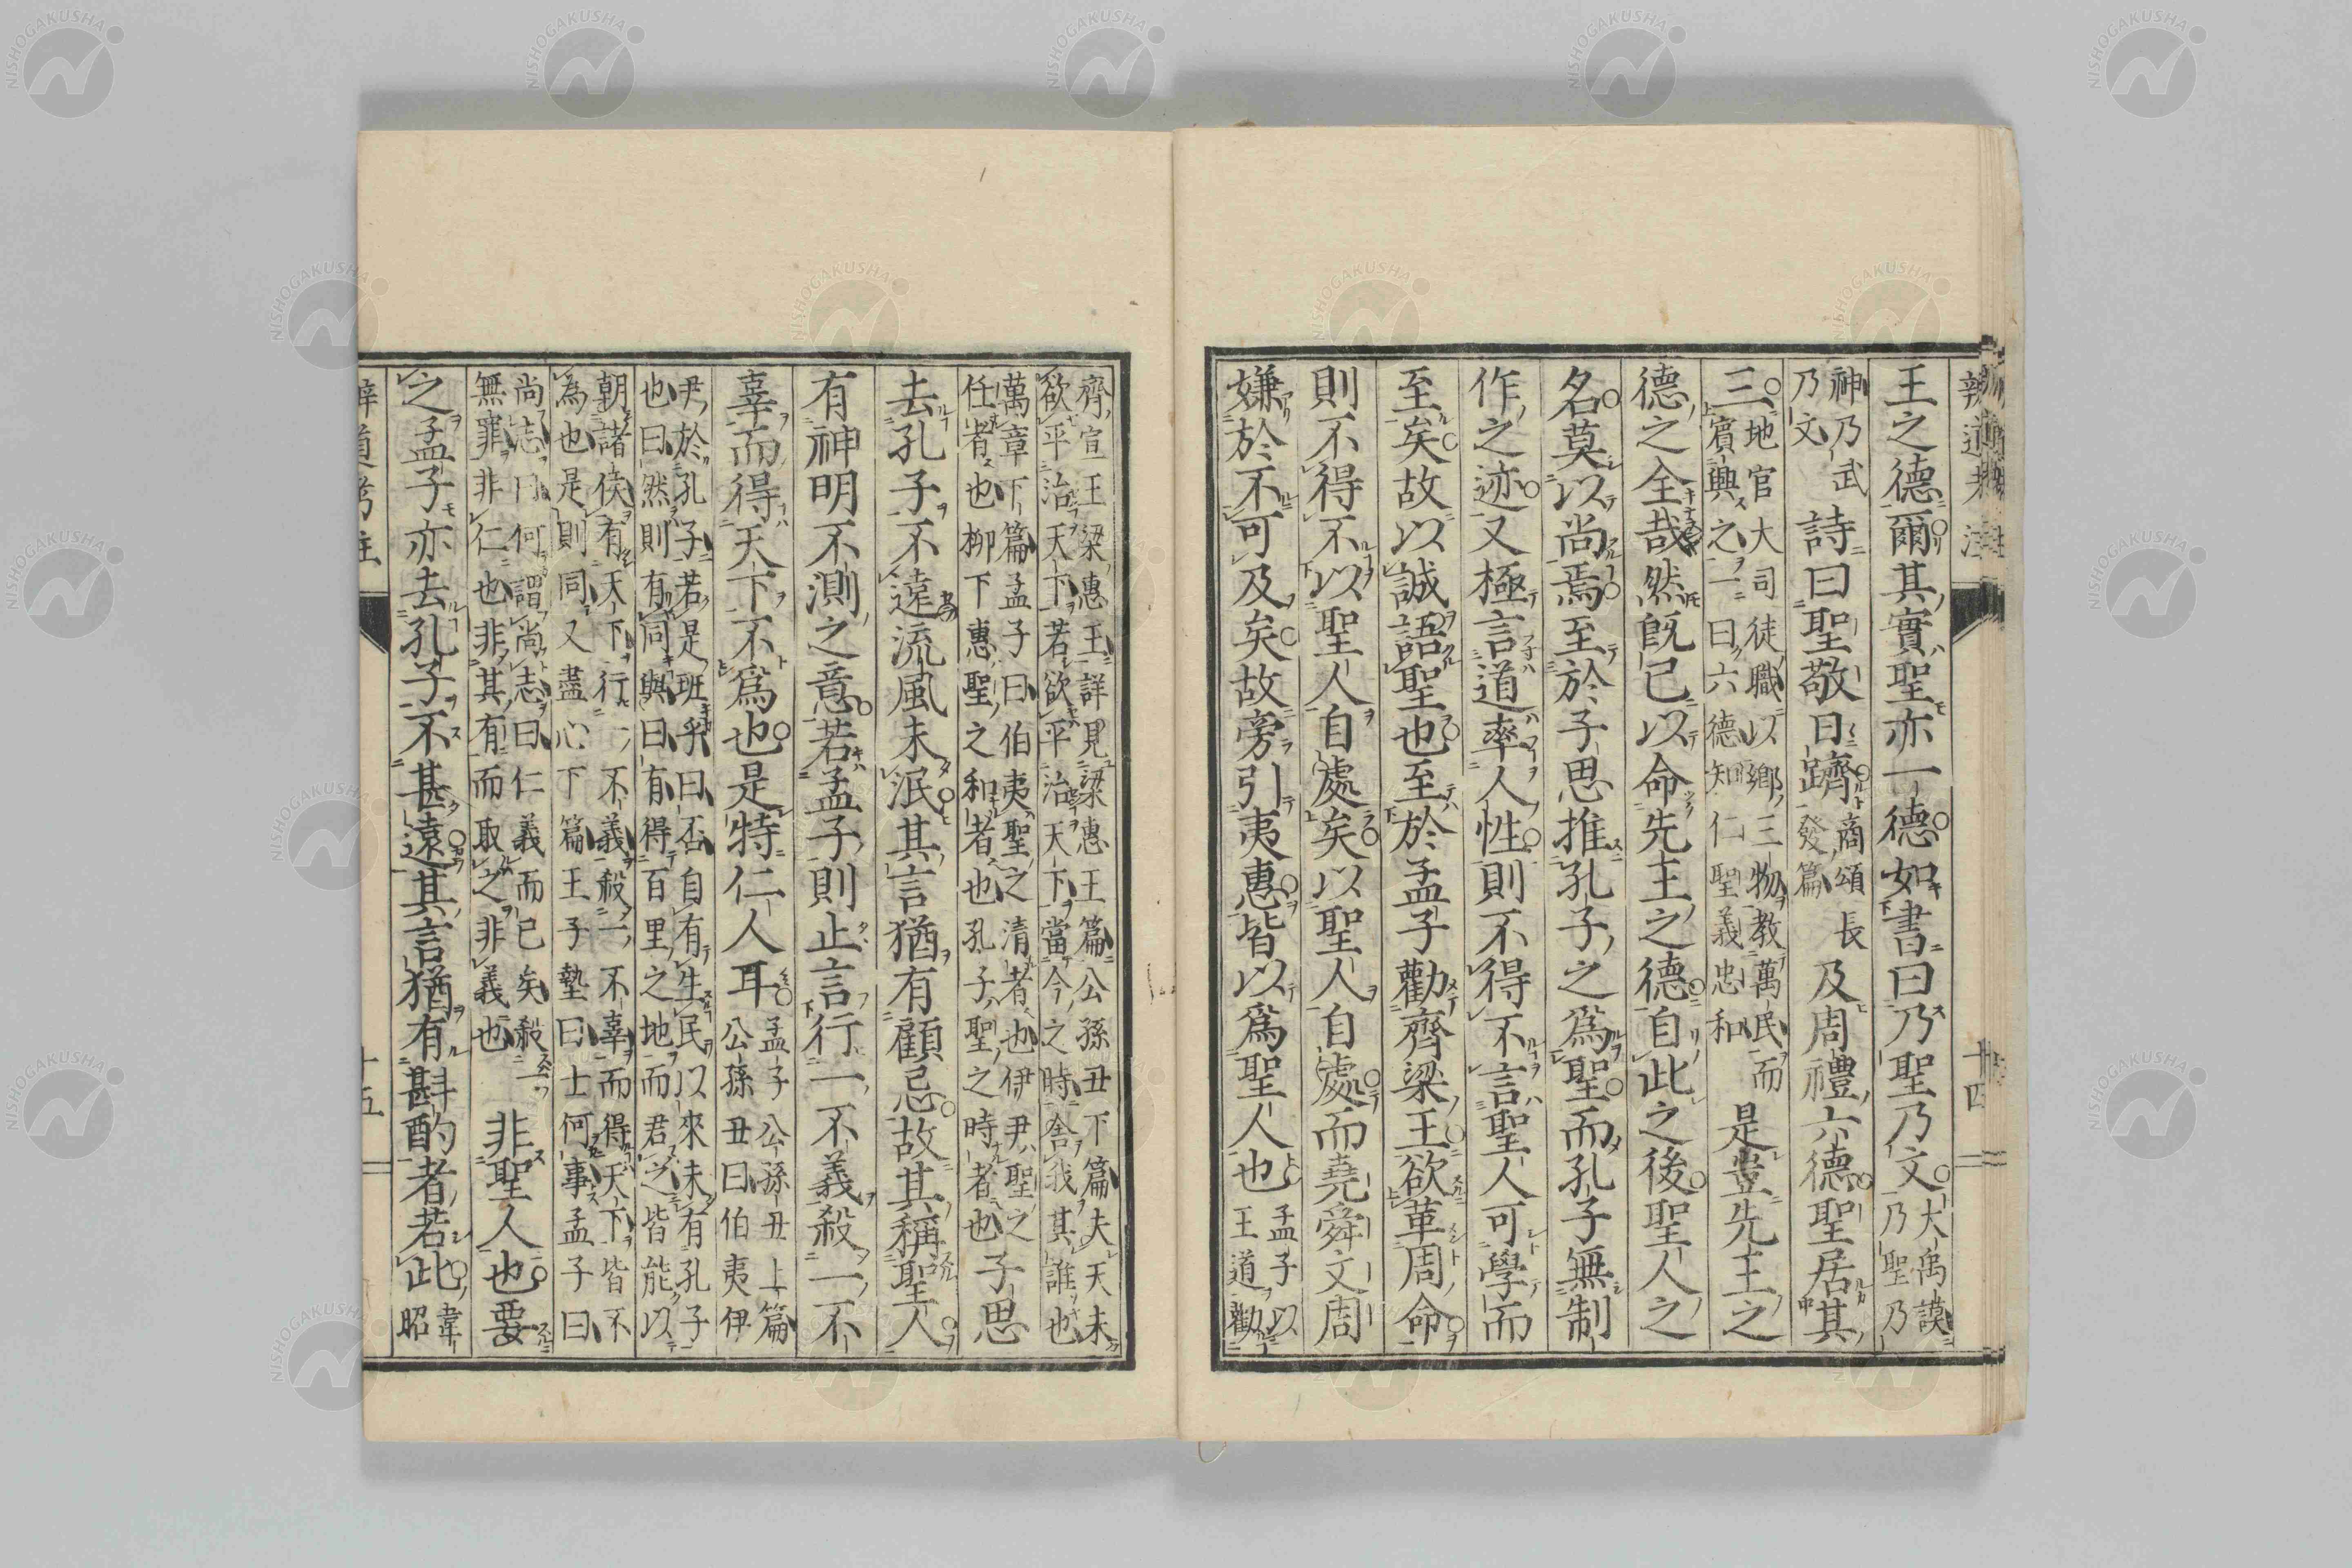 辨道考注 十四
王之德爾其實聖亦一德如書曰乃聖乃文大禹謨乃聖乃
神乃武乃文詩曰聖敬日躋商頌長發篇及周禮六德聖居其
三地官大司徒職以鄉三物教萬民而賓興之一曰六德知仁聖義忠和是豈先王之
德之全哉然旣已以命先王之德自此之後聖人之
名莫以尚焉至於子思推孔子之爲聖而孔子無制
作之迹又極言道率人性則不得不言聖人可學而
至矣故以誠語聖也至於孟子勸齊梁王欲革周命
則不得不以聖人自處矣以聖人自處而堯舜文周
嫌於不可及矣故旁引夷惠皆以爲聖人也孟子以王道勸
齊宣王梁惠王詳見梁惠王篇公孫丑下篇夫天未
欲平治天下若欲平治天下當今之時舍我其誰也
萬章下篇孟子曰伯夷聖之清者也伊尹聖之任者也柳下惠聖之和者也孔子聖之時者也子思
去孔子不遠流風未泯其言猶有顧忌故其稱聖人
有神明不測之意若孟子則止言行一不義殺一不
辜而得天下不爲也是特仁人耳孟子公孫丑上篇公孫丑曰伯夷伊
尹於孔子若是班乎曰否自有生民以來未有孔子
也曰然則有同與曰有得百里之地而君之皆能以
朝諸侯有天下行一不義殺一不辜而得天下皆不
為也是則同又盡心下篇王子墊曰士何事孟子曰
尚志曰何謂尚志曰仁義而已矣殺一無罪非仁也非其有而取之非義也非聖人也要
之孟子亦去孔子不甚遠其言猶有斟酌者若此韋昭
十五
NISHOGAKUSHA